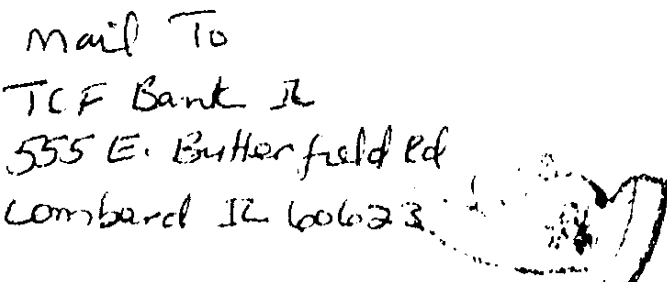 Mail To
TCF Bank IL
555 E. Butterfield Rd
Lombard IL 60623